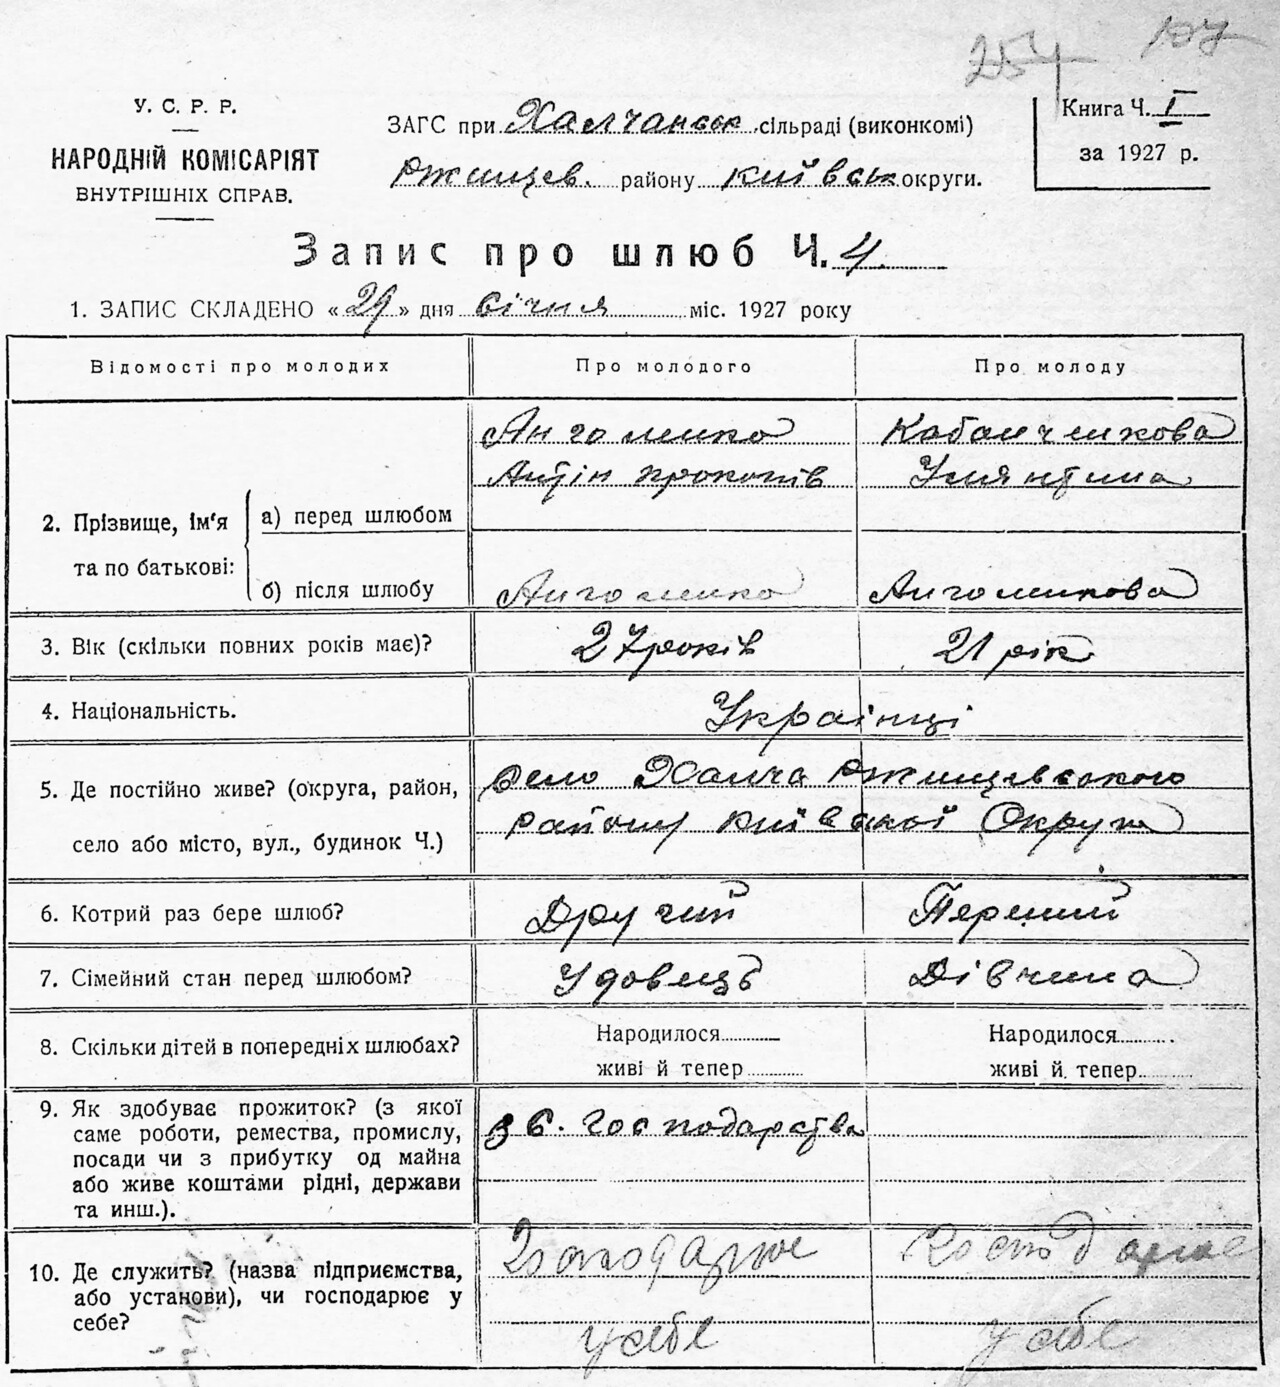 254
У. С. Р. Р.
НАРОДНІЙ КОМІСАРІЯТ
ВНУТРІШНІХ СПРАВ.
ЗАГС при Халчанськ сільраді (виконкомі)
Ржищев. району Київськ округи.
Книга Ч. I
за 1927 р.
Запис про шлюб Ч. 4
1. ЗАПИС СКЛАДЕНО «29» дня січня міс. 1927 року
Відомості про молодих Про молодого Про молоду
2. Прізвище, ім'я та по батькові:
а) перед шлюбом
Антін Прокопів
Уліянтина
б) після шлюбу
3. Вік (скільки повних років має)? 27 років 21 рік
4. Національність. Українці
5. Де постійно живе? (округа, район, село або місто, вул., будинок Ч.)
Село Халча Ржищевського
району Київської Округи
6. Котрий раз бере шлюб? Другий Перший
7. Сімейний стан перед шлюбом? Удовець Дівчина
8. Скільки дітей в попередніх шлюбах?
Народилося Народилося
живі й тепер живі й тепер
9. Як здобуває прожиток? (з якої
саме роботи, ремества, промислу,
посади чи з прибутку од майна
або живе коштами рідні, держави
та инш.).
з с. господарства
10. Де служить? (назва підприємства,
або установи), чи господарює у
себе?
Господарює Господарює
у себе у себе